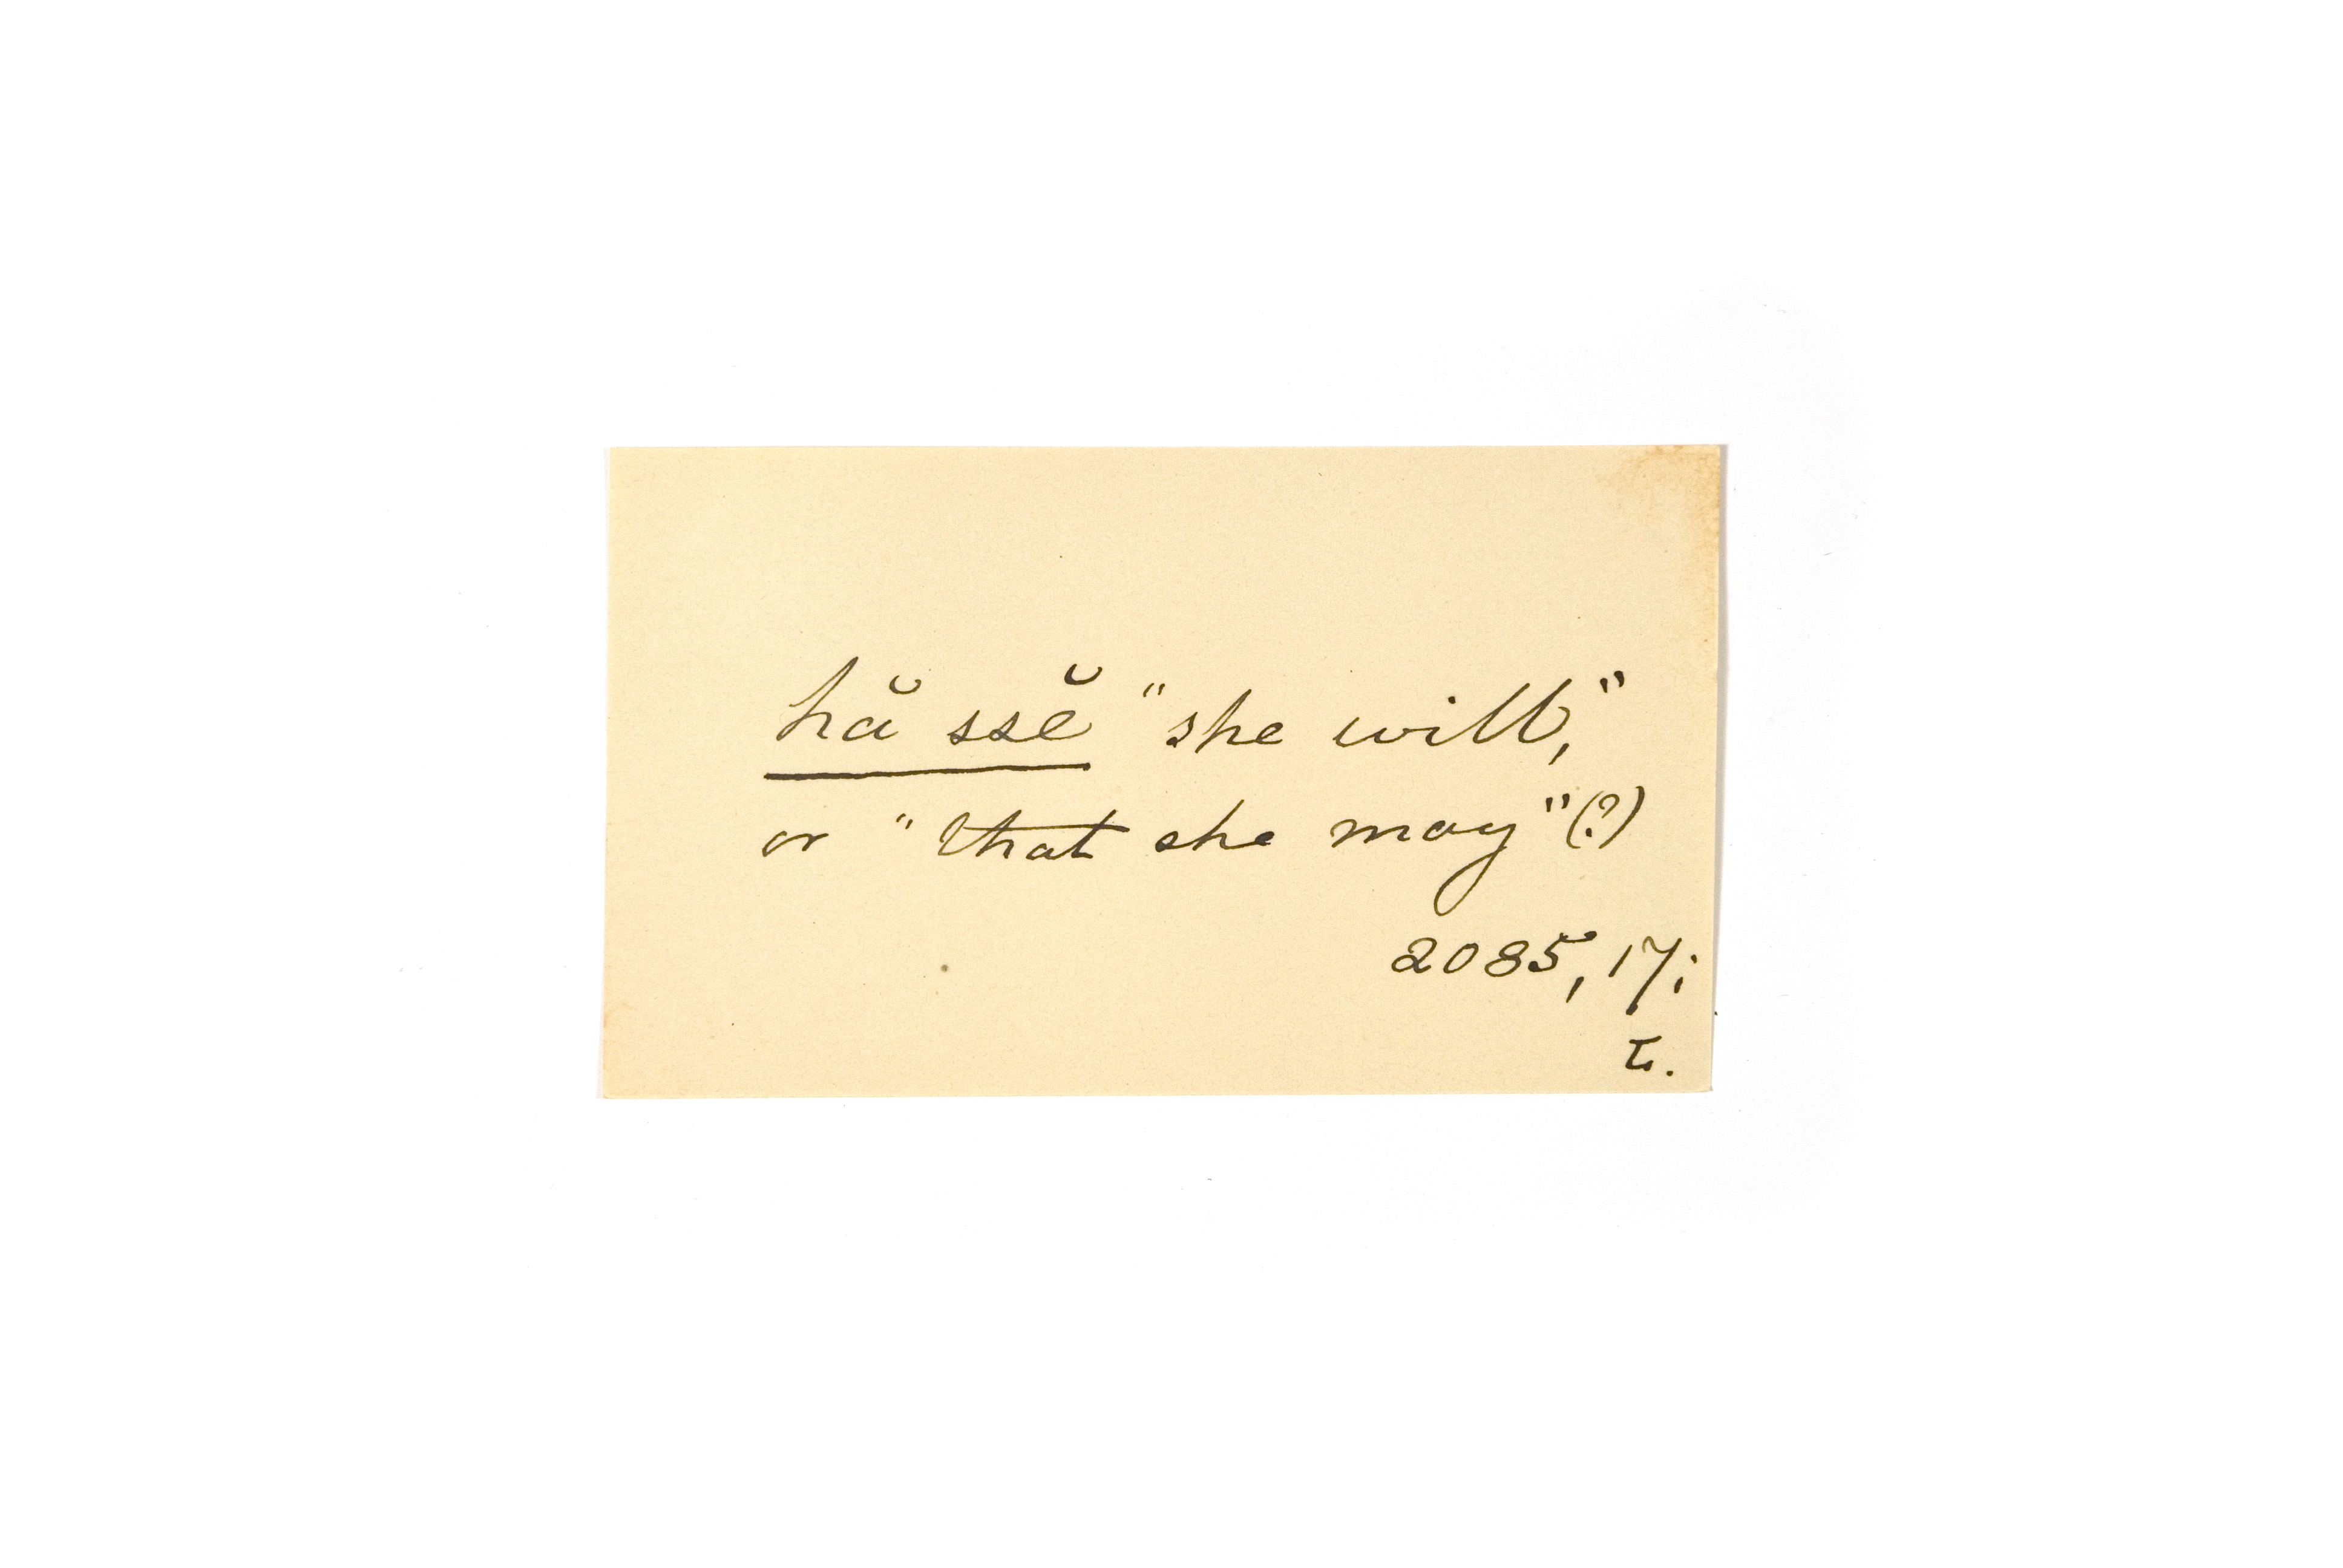 hă ssĕ "she will,"
or "that she may" (?)
2085, 17;
L.